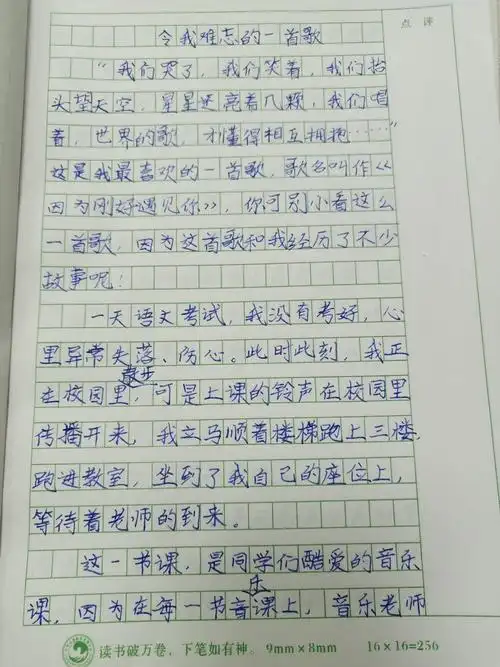 点评
令我难忘的一首歌
“我们哭了，我们笑着，我们抬
头望天空，星星还亮着几颗，我们唱
着，世界的歌，才懂得相互拥抱……”
这是我最喜欢的一首歌，歌名叫作《
因为刚好遇见你》，你可别小看这么
一首歌，因为这首歌和我经历了不少
故事呢！
一天语文考试，我没有考好，心
里异常失落、伤心。此时此刻，我正
在校园里散步，可是上课的铃声在校园里
传播开来，我立马顺着楼梯跑上三楼，
跑进教室，坐到了我自己的座位上，
等待着老师的到来。
这一书课，是同学们酷爱的音乐
课，因为在每一节音乐课上，音乐老师
读书破万卷，下笔如有神。 9mm×8mm 16×16=256